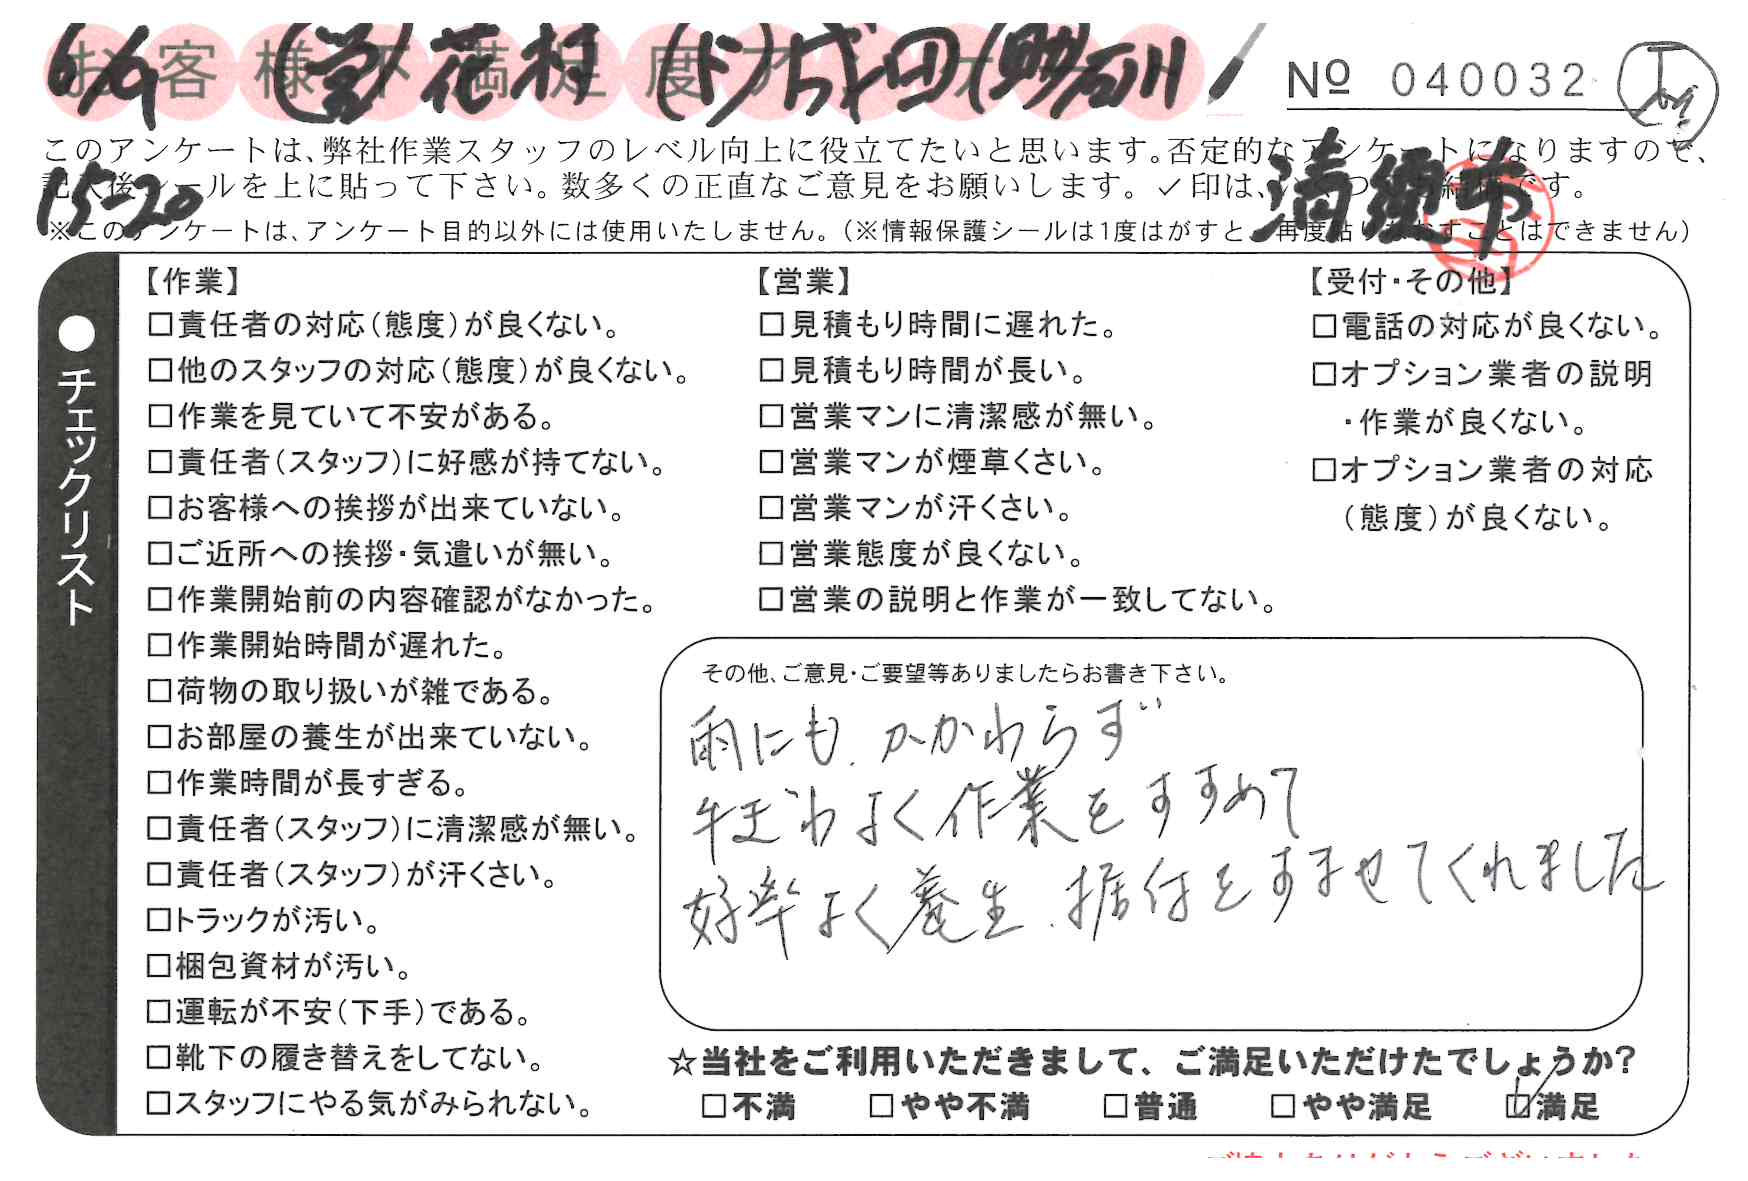 お客様不満足度アンケート
6/9 (営)花村 (ド)成田 (助)石川
No 040032
このアンケートは、弊社作業スタッフのレベル向上に役立てたいと思います。否定的なアンケートになりますので、
記入後シールを上に貼って下さい。数多くの正直なご意見をお願いします。✓印は、いくつでも結構です。
15-20
清須市
※このアンケートは、アンケート目的以外には使用いたしません。(※情報保護シールは1度はがすと、再度貼りなおすことはできません)
●チェックリスト
【作業】
□責任者の対応(態度)が良くない。
□他のスタッフの対応(態度)が良くない。
□作業を見ていて不安がある。
□責任者(スタッフ)に好感が持てない。
□お客様への挨拶が出来ていない。
□ご近所への挨拶・気遣いが無い。
□作業開始前の内容確認がなかった。
□作業開始時間が遅れた。
□荷物の取り扱いが雑である。
□お部屋の養生が出来ていない。
□作業時間が長すぎる。
□責任者(スタッフ)に清潔感が無い。
□責任者(スタッフ)が汗くさい。
□トラックが汚い。
□梱包資材が汚い。
□運転が不安(下手)である。
□靴下の履き替えをしてない。
□スタッフにやる気がみられない。
【営業】
□見積もり時間に遅れた。
□見積もり時間が長い。
□営業マンに清潔感が無い。
□営業マンが煙草くさい。
□営業マンが汗くさい。
□営業態度が良くない。
□営業の説明と作業が一致してない。
【受付・その他】
□電話の対応が良くない。
□オプション業者の説明
・作業が良くない。
□オプション業者の対応
(態度)が良くない。
その他、ご意見・ご要望等ありましたらお書き下さい。
雨にも、かかわらず
手ぎわよく作業をすすめて
効率よく養生、据付をすませてくれました
☆当社をご利用いただきまして、ご満足いただけたでしょうか?
□不満 □やや不満 □普通 □やや満足 ☑満足